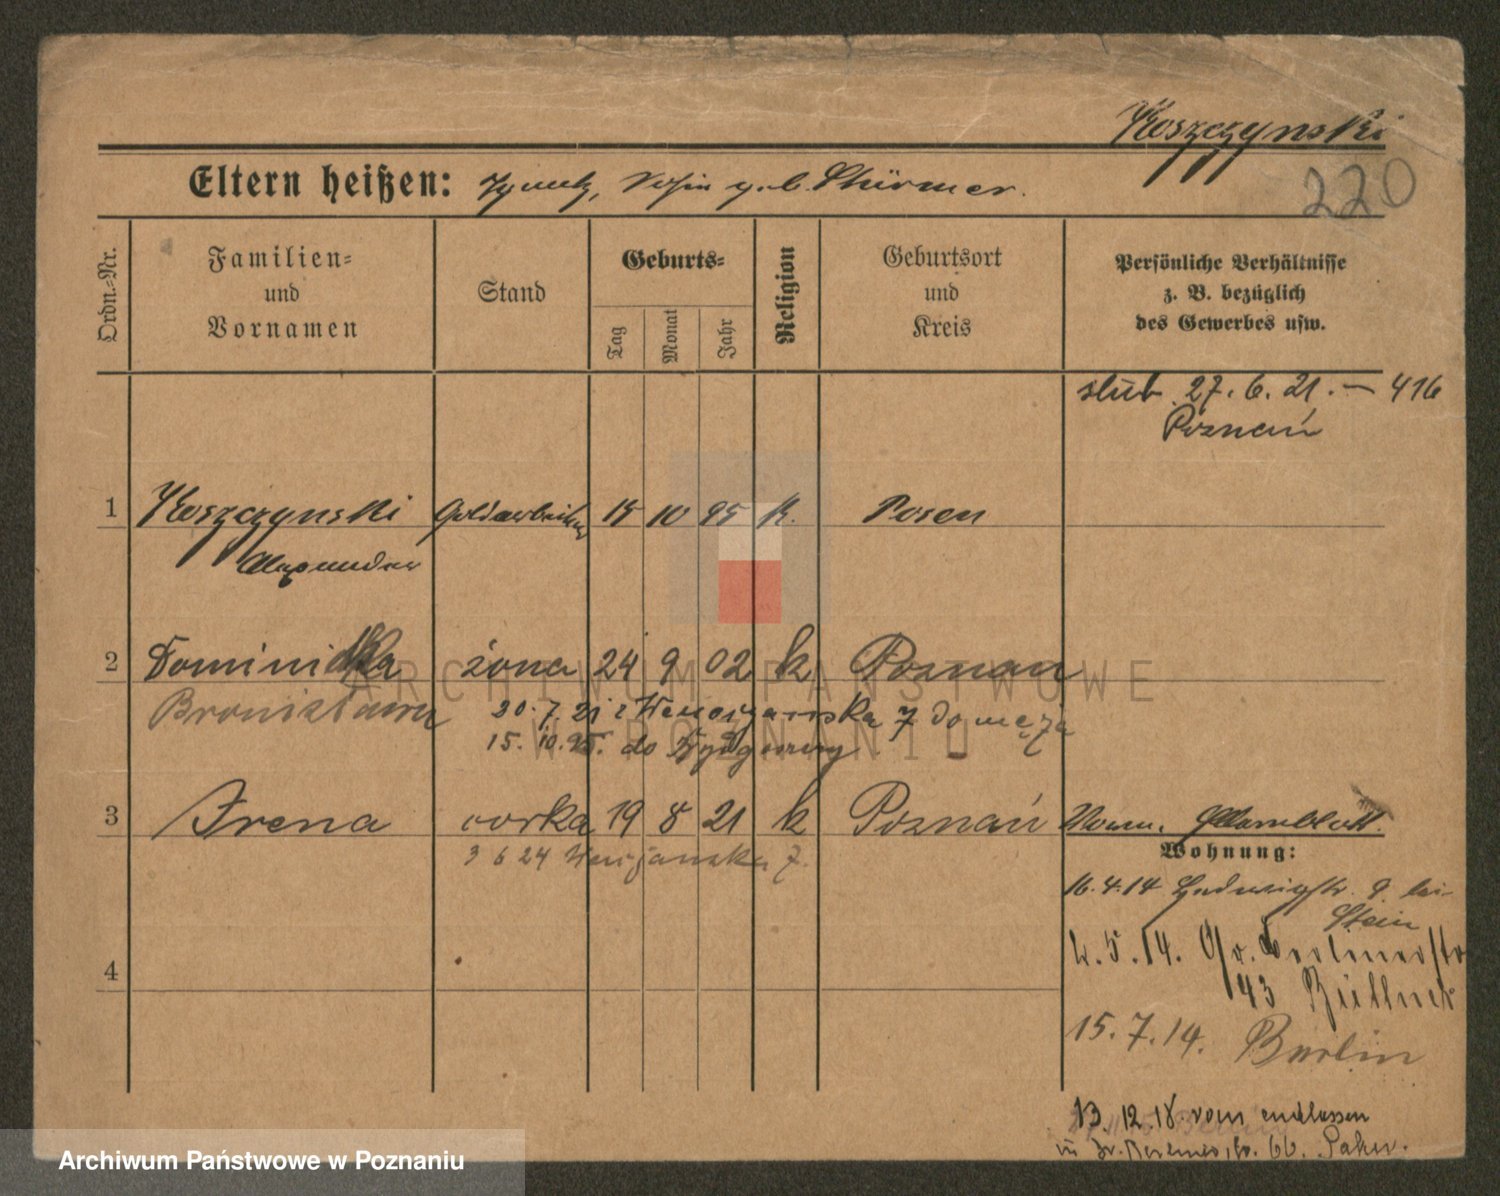 Koszczynski
220
Eltern heißen: Ignatz, geb. Stürmer.
Ordn.-Nr.
Familien- und Vornamen
Stand
Geburts-
Tag
Monat
Jahr
Religion
Geburtsort und Kreis
Persönliche Verhältnisse
z. B. bezüglich
des Gewerbes usw.
slub 27. 6. 21. — 416
Poznań
1 Koszczynski Goldarbeiter 15 10 95 K. Posen
Alexander
2 Dominika żona 24 9 02 k Poznan
Bronisława 20. 7. 21 z 7 do męża
15. 10. 25. do Bydgoszczy
3 Irena corka 19 8 21 k Poznań
3 6 24 7.
Wohnung:
16. 4. 14 Ludwigstr. 9 bei
Stein
2. 5. 14. Gr. Berlinerstr
43 Büttner
15. 7. 14. Berlin
4
13. 12. 18. vom entlassen
66.
ARCHIWUM PAŃSTWOWE
W POZNANIU
Archiwum Państwowe w Poznaniu